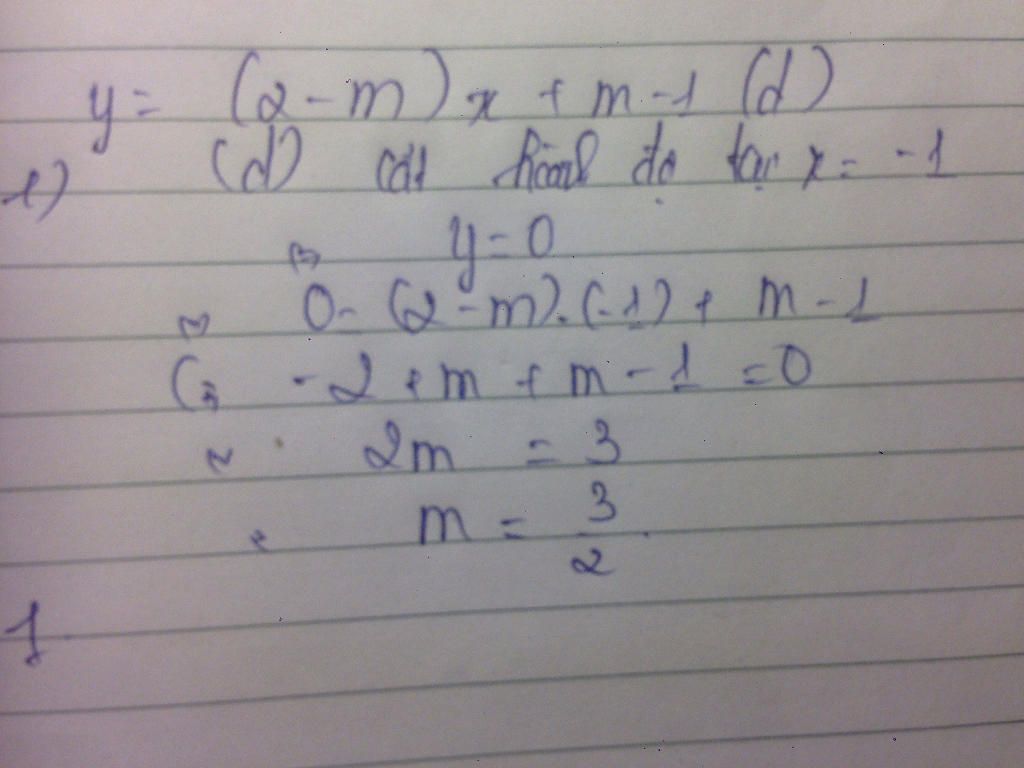 y = (2 - m) x + m - 1 (d)
e) (d) cắt hoành độ tại x = -1
⇔ y = 0
⇔ 0 = (2 - m). (-1) + m - 1
⇔ -2 + m + m - 1 = 0
⇔ 2m = 3
m = 3/2
f